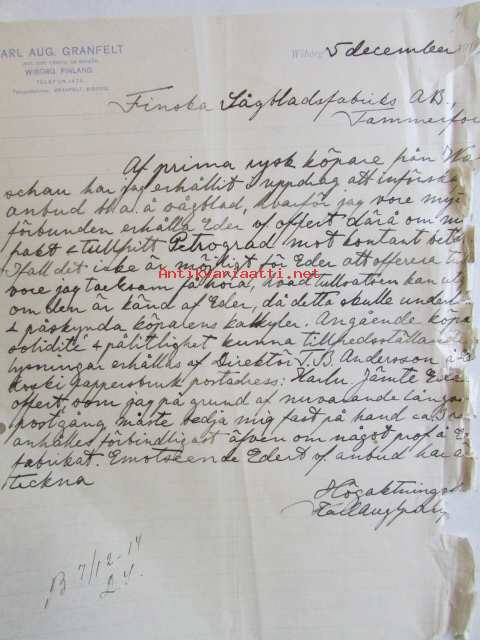 ARL AUG. GRANFELT
WIBORG, FINLAND.
TELEFON 1476.
Wiborg 5 december
Finska Sågbladsfabriks A.B.,
Tammerfor
Af prima rysk köpare från Wa
schau har jag erhållit i uppdrag att införska
anbud bl. a. å sågblad, hvarför jag vore my
förbunden erhålla Eder v. offert därå om m
pakt & tullfritt Petrograd mot kontant beta
Ifall det icke är möjligt för Eder att offerera t
vore jag tacksam få höra, hvad tullsatsen kan ut
om den är känd af Eder, då detta skulle under
& påskynda köparens kalkyler. Angående köpa
solidité & pålitlighet kunna tillfredsställan
lysningar erhållas af Direktör T. B. Andersson
Pappersbruk postadress: Harlu. Jämte
offert, som jag på grund af nuvarande långs
postgång måste bedja mig fast på hand ca 3
anhålles förbindligast äfven om något prof å E
fabrikat. Emotseende Edert v. anbud har
teckna
Högaktnings
B 7/12-14
antikvariaatti.net